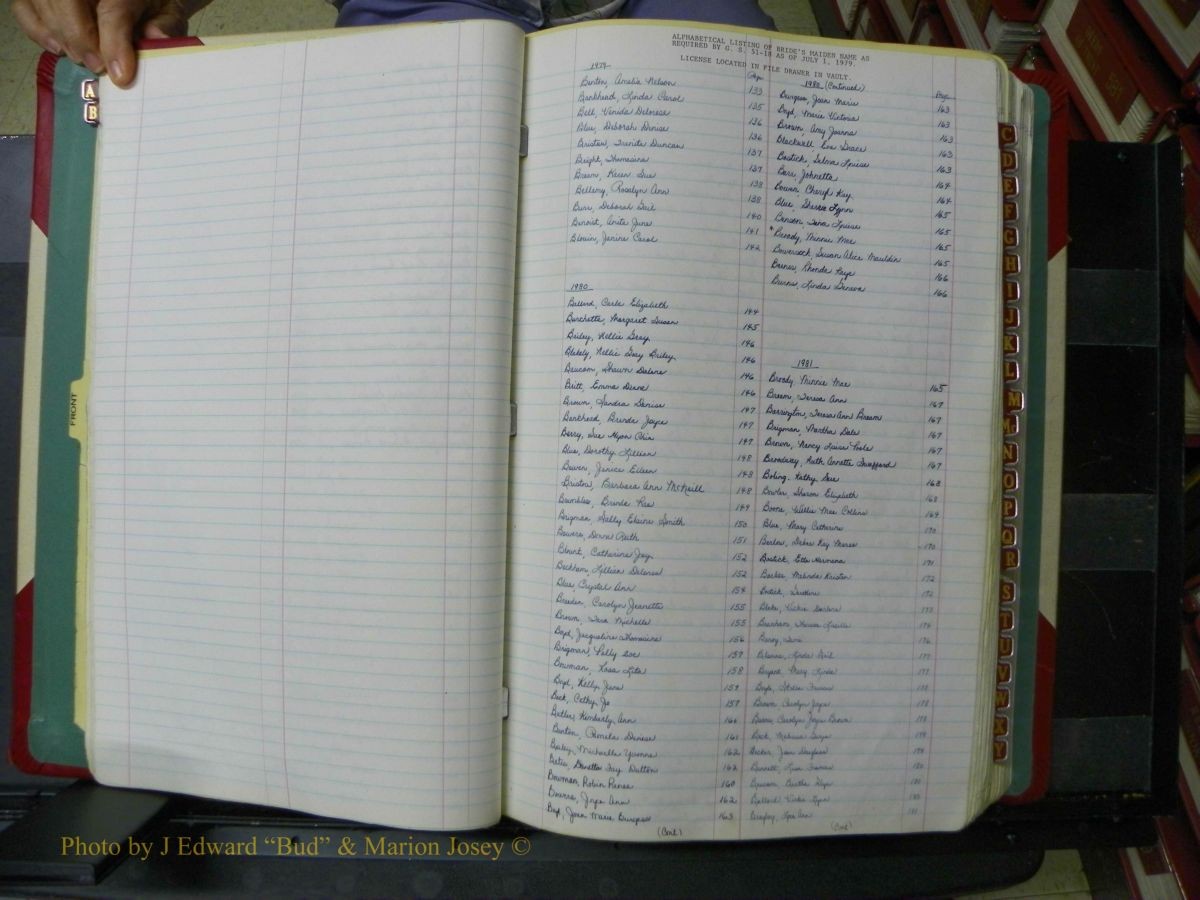 ALPHABETICAL LISTING OF BRIDE'S MAIDEN NAME AS
REQUIRED BY G. S. 51-18 AS OF JULY 1, 1979.
LICENSE LOCATED IN FILE DRAWER IN VAULT.
1979 Page
Benton, Amelia Nelson 133
Bankhead, Linda Carol 135
Bell, Venida Delorese 136
Blue, Deborah Denise 136
Bristow, Trenite Duncan 137
Bright, Thomasine 137
Bream, Karen Sue 138
Bellemy, Rosalyn Ann 138
Burr, Deborah Gail 140
Benoist, Anita June 141
Blouin, Janine Carol 142
1980
Ballard, Carla Elizabeth 144
Burchette, Margaret Susan 145
Bailey, Nellie Gray 146
Blakely, Nellie Gray Bailey 146
Beucom, Shawn Dalene 146
Britt, Emma Deane 146
Brown, Sandra Denise 147
Bankhead, Brenda Joyce 147
Berry, Sue Hyon Chin 147
Blue, Dorothy Lillian 148
Bowen, Janice Eileen 148
Bristow, Barbara Ann McNeill 148
Brumbles, Brenda Rae 149
Brigman, Sally Elaine Smith 150
Bowers, Donna Ruth 151
Blount, Catharine Joy 152
Beckham, Lillian Delores 152
Blue, Crystal Ann 154
Breeden, Carolyn Jeanette 155
Brown, Tara Michelle 155
Boyd, Jacqueline Thomasine 156
Brigman, Polly Sue 157
Bowman, Rosa Lita 158
Boyd, Kelly Jane 159
Beck, Cathy Jo 157
Butler, Kimberly Ann 160
Benton, Pamela Denese 161
Bailey, Michaella Yvonne 162
Fay Dutton 162
Bowman, Robin Renee 160
Bourne, Joyce Ann 162
Boyd, Joan Marie Burgess 163
(Con't)
1980 (Continued) Page
Burgess, Joan Marie 163
Boyd, Marie Victoria 163
Brown, Amy Joanna 163
Blackwell, Eva Grace 163
Bostick, Selma Louise 164
Barr, Johnetta 164
Bowen, Cheryl Kay 165
Blue, Sherrie Lynn 165
Benson, Tena Louise 165
*Broady, Minnie Mae
Bowersock, Susan Alice Mauldin 166
Barnes, Rhonda Faye 166
Burns, Linda Geneva
1981
Broady, Minnie Mae 165
Bream, Teresa Ann 167
Barrington, Teresa Ann Bream 167
Brigman, Martha Dale 167
Brown, Nancy Luise Poole 167
Broadway, Ruth Annette Swafford 167
Boling, Kathy Sue 168
Bowler, Sharon Elizabeth 168
Boone, Willie Mae Collins 169
Blue, Mary Catherine 170
Barlow, Debra Kay Morse 170
Bostick, Etta Hermena 171
Barker, Melinda Kristen 172
Bostick, 172
Blake, Vickie 173
Branham, 174
176
Linda Gail 177
Bryant, Mary Linda 177
Boyd,
Brown, Carolyn Joyce 178
Carolyn Joyce Brown 178
Beck, Melissa
Becker, Joan 179
Bennett, 180
Ballard, Vickie Lynn
Ann
(Con't)
A
B
FRONT
C
D
E
F
G
H
I
J
K
L
M
Mc
N
O
P
Q
R
S
T
U
V
W
X Y
Photo by J Edward “Bud” & Marion Josey ©